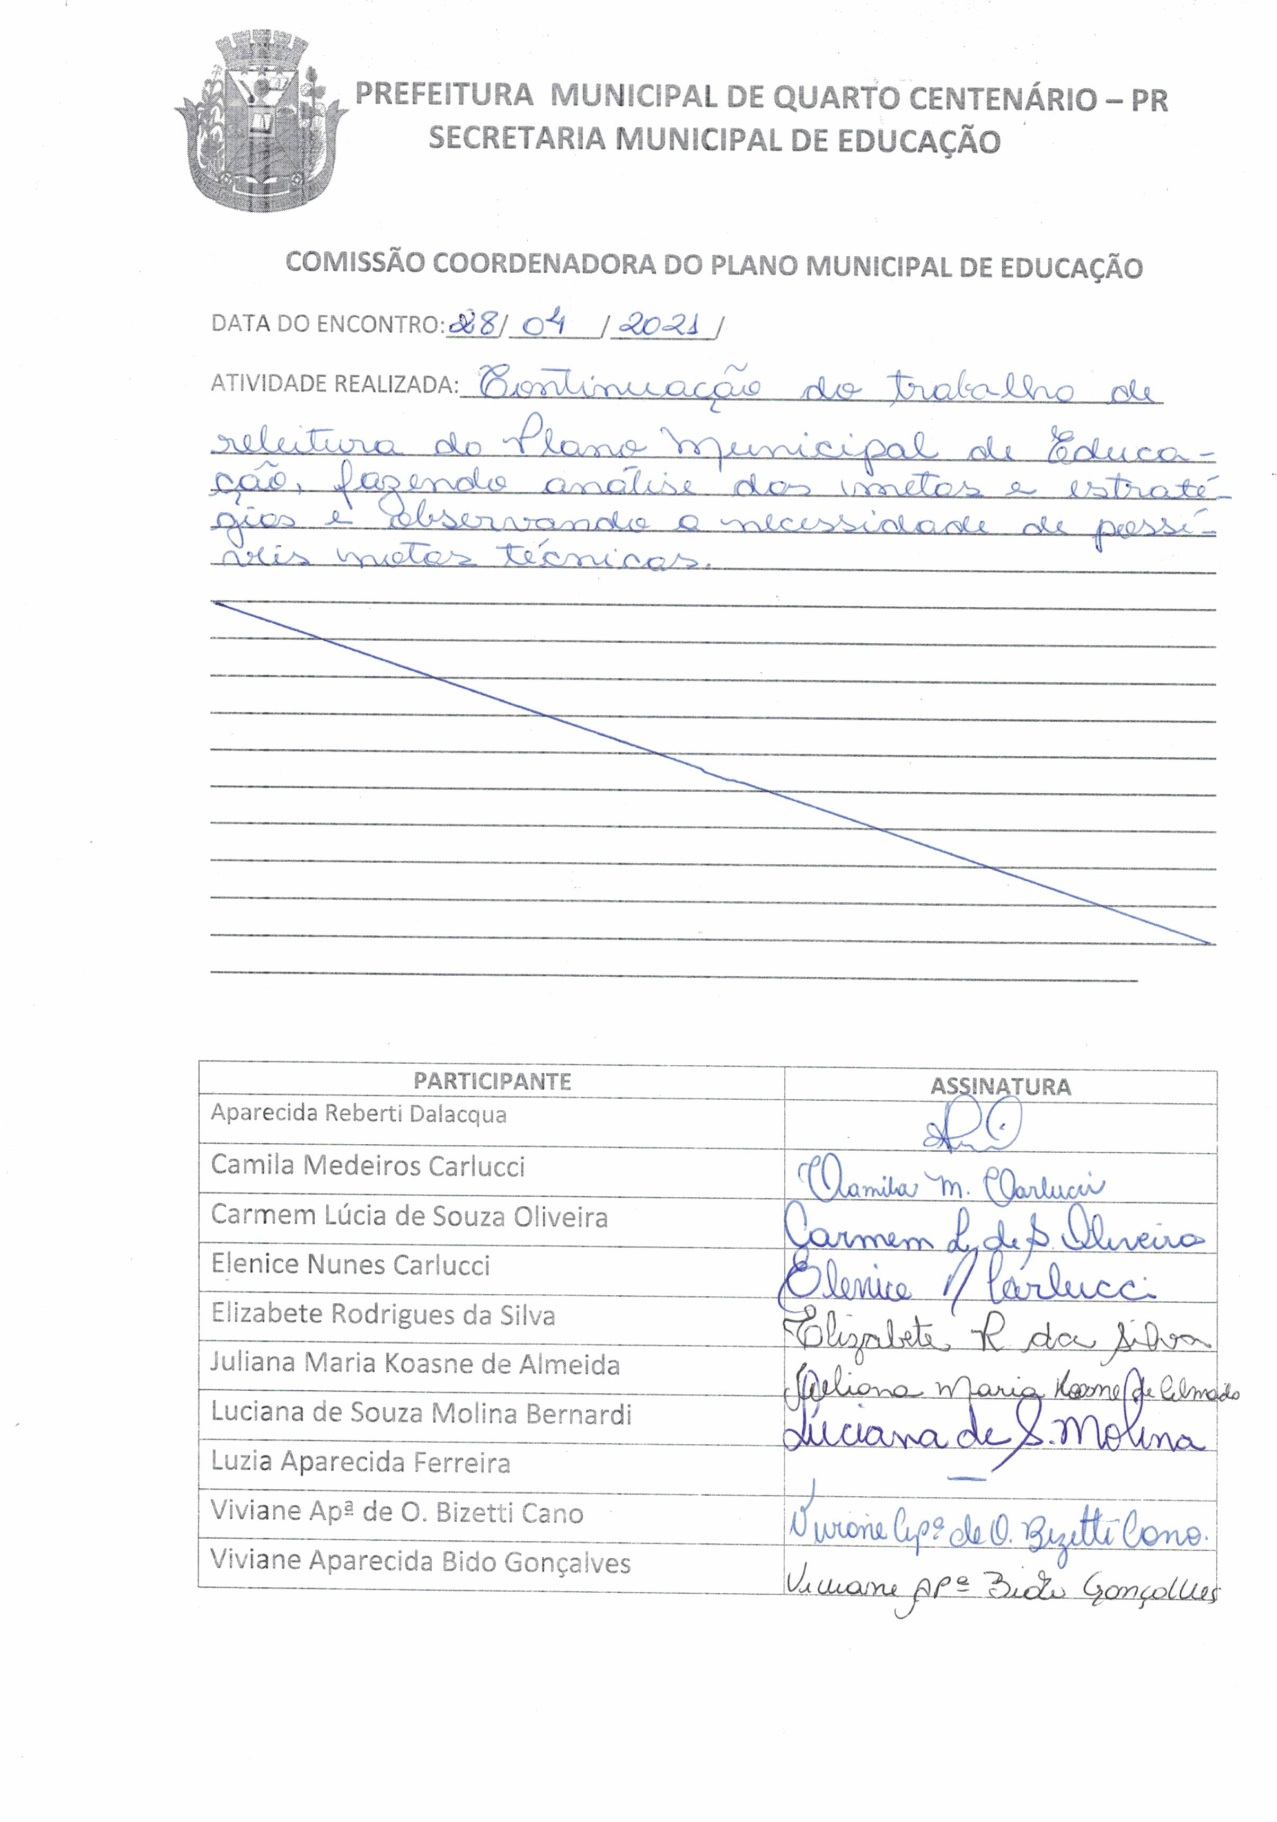 PREFEITURA MUNICIPAL DE QUARTO CENTENÁRIO – PR
SECRETARIA MUNICIPAL DE EDUCAÇÃO
COMISSÃO COORDENADORA DO PLANO MUNICIPAL DE EDUCAÇÃO
DATA DO ENCONTRO: 28/ 04 / 2021 /
ATIVIDADE REALIZADA: Continuação do trabalho de
releitura do Plano Municipal de Educa-
ção, fazendo análise das metas e estraté-
gias e observando a necessidade de possí-
veis notas técnicas.
PARTICIPANTE ASSINATURA
Aparecida Reberti Dalacqua
Camila Medeiros Carlucci Camila M. Carlucci
Carmem Lúcia de Souza Oliveira Carmem L. de S. Oliveira
Elenice Nunes Carlucci Elenice N Carlucci
Elizabete Rodrigues da Silva Elizabete R da Silva
Juliana Maria Koasne de Almeida Juliana Maria Koasne de Almeida
Luciana de Souza Molina Bernardi Luciana de S. Molina
Luzia Aparecida Ferreira —
Viviane Apª de O. Bizetti Cano Viviane Apª de O. Bizetti Cano.
Viviane Aparecida Bido Gonçalves Viviane Apª Bido Gonçalves